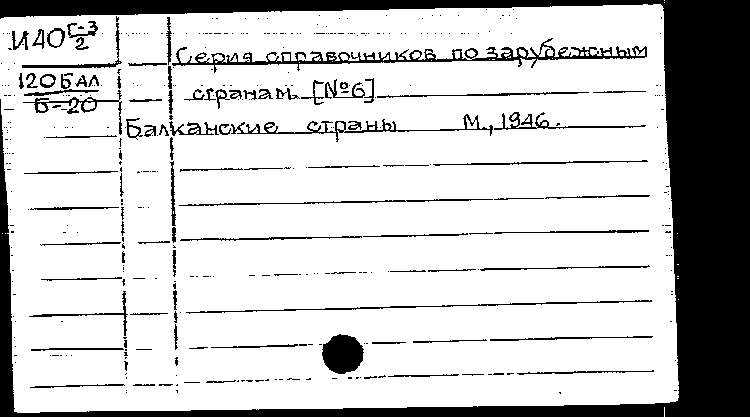 И40 Г-3/2
Серия справочников по зарубежным
120 БАЛ
странам [№6]
Б-20
Балканские страны М., 1946.